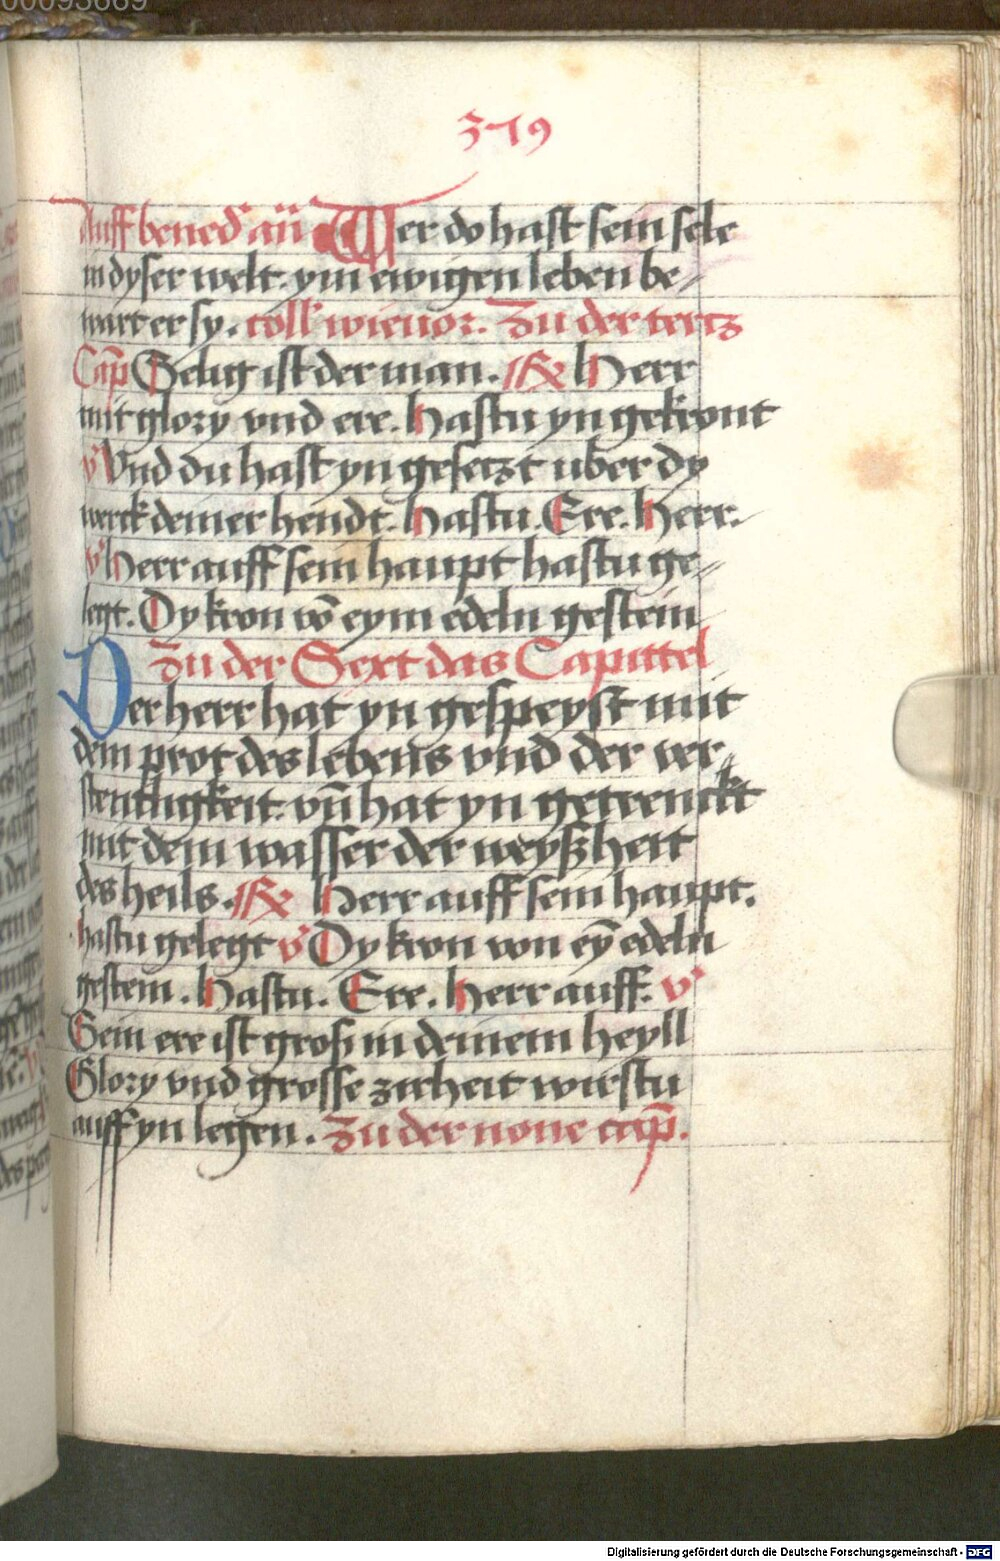 00093669
379
Auff bened' añ Wer do hast sein sele
in dyser welt. ym ewigen leben be-
wart er sy. coll' wie vor. Zu der tertz
Cap̃ Selig ist der man. R Herr
mit glory vnd ere. hastu yn gekront
v' Vnd du hast yn gesetzt uber dy
werck deiner hendt. hastu. Ere. Herr.
v' Herr auff sein haupt hastu ge-
legt. Dy kron võ eym edeln gestein
Zu der Sext das Capittel
Der herr hat yn gespeyst mit
dem prot des lebens vnd der ver-
stentligkeit. vñ hat yn getrenckt
mit dem wasser der weyßheit
des heils. R Herr auff sein haupt.
hastu gelegt v' Dy kron von eỹ edeln
gestein. hastu. Ere. herr auff. v'
Sein ere ist groß in deinem heyll
Glory vnd grosse zirheit wirstu
auff yn legen. Zu der none cap̃.
Digitalisierung gefördert durch die Deutsche Forschungsgemeinschaft - DFG